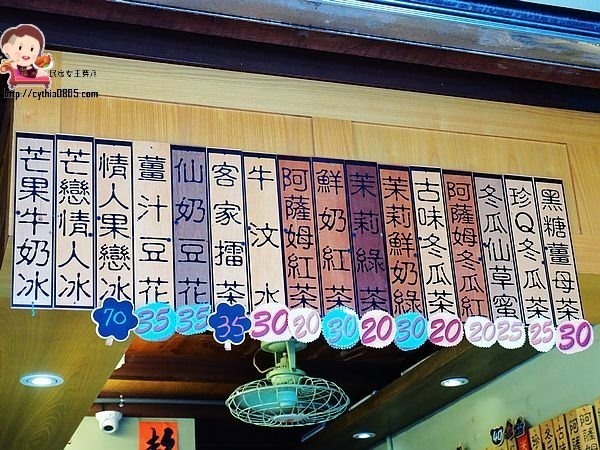 民宿女王芽月
http://cythia0805.com
芒果牛奶冰
芒戀情人冰
情人果戀冰
薑汁豆花
仙奶豆花
客家擂茶
牛汶水
阿薩姆紅茶
鮮奶紅茶
茉莉綠茶
茉莉鮮奶綠
古味冬瓜茶
阿薩姆冬瓜紅
冬瓜仙草蜜
珍Q冬瓜茶
黑糖薑母茶
70
35
35
35
30
20
30
20
30
20
20
25
25
30